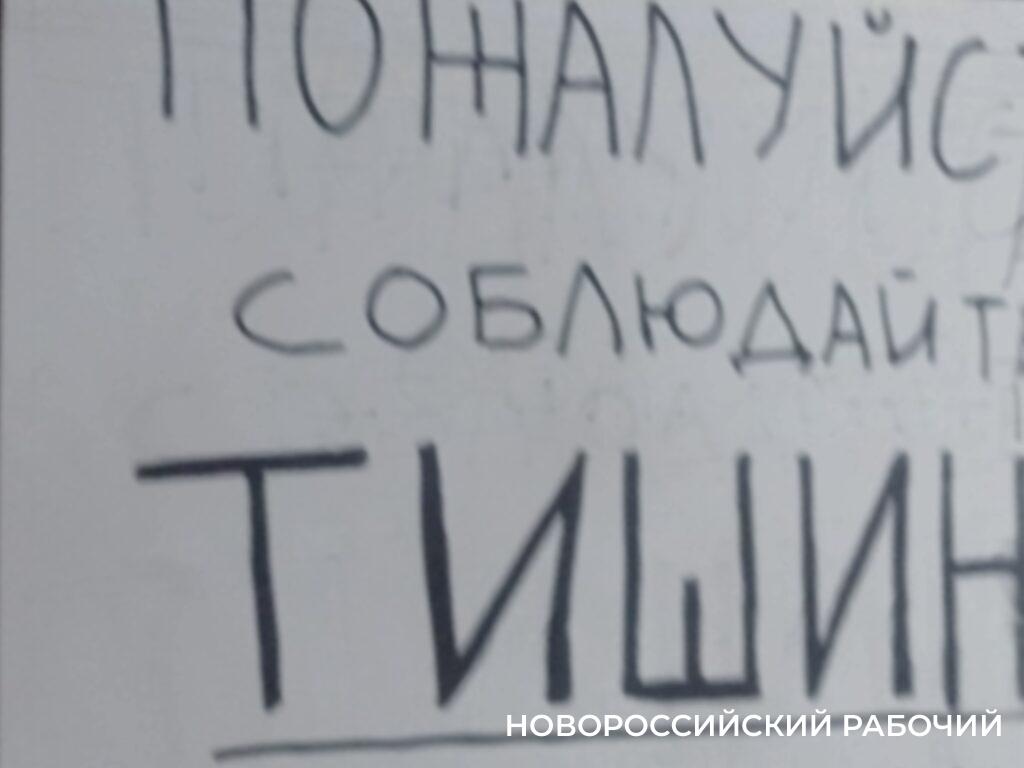 ПОЖАЛУЙС
СОБЛЮДАЙТ
ТИШИН
НОВОРОССИЙСКИЙ РАБОЧИЙ